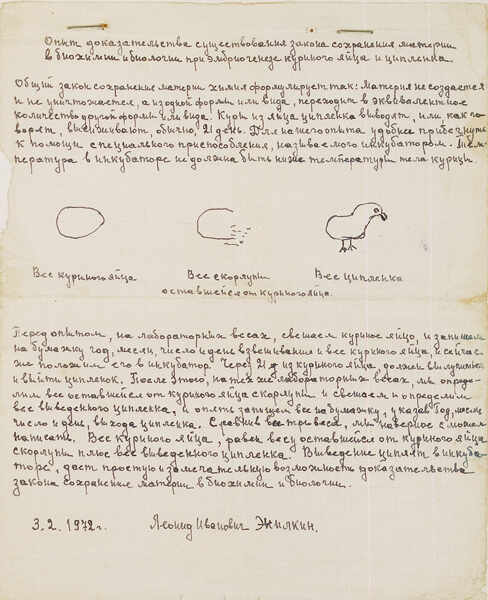 Опыт доказательства существования закона сохранения материи
в биохимии и биологии при эмбриогенезе куриного яйца и цыпленка.
Общий закон сохранение материи химия формулирует так: Материя не создается
и не уничтожается, а из одной формы или вида, переходит в эквивалентное
количество другой формы или вида. Куры из яйца цыпленка выводят, или как го-
ворят, высиживают, обычно, 21 день. Для нашего опыта удобнее прибегнуть
к помощи специального приспособления, называемого инкубатором. Тем-
пература в инкубаторе не должна быть ниже температуры тела курицы.
Вес куриного яйца
Вес скорлупы
оставшейся от куриного яйца.
Вес цыпленка
Перед опытом, на лабораторных весах, свешаем куриное яйцо, и запишем
на бумажку год, месяц, число и день взвешивания и вес куриного яйца, и сейчас
же положим его в инкубатор. Через 21 д из куриного яйца, должен вылупиться
и выйти цыпленок. После этого, на тех же лабораторных весах, мы опреде-
лим вес оставшейся от куриного яйца скорлупы и свешаем и определим
вес выведенного цыпленка, и опять запишем вес на бумажку, указав год, месяц,
число и день, выхода цыпленка. Сравнив все три веса, мы наверное сможем
написать. Вес куриного яйца, равен весу оставшейся от куриного яйца
скорлупы плюс вес выведенного цыпленка. Выведение цыплят в инкуба-
торе, даст простую и замечательную возможность доказательства
закона сохранение материи в биохимии и биологии.
3.2.1972 г. Леонид Иванович Жилкин.